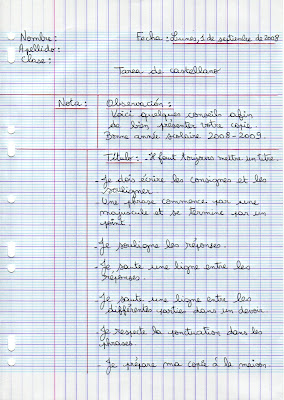 Nombre: Fecha: Lunes, 1 de septiembre de 2008
Apellido:
Clase:
Tarea de castellano
Nota: Observación:
Voici quelques conseils afin
de bien présenter votre copie.
Bonne année scolaire 2008-2009.
Título: - Il faut toujours mettre un titre.
- Je dois écrire les consignes et les
souligner.
- Une phrase commence par une
majuscule et se termine par un
point.
- Je souligne les réponses.
- Je saute une ligne entre les
réponses.
- Je saute une ligne entre les
différentes parties dans un devoir
- Je respecte la ponctuation dans les
phrases
- Je prépare ma copie à la maison